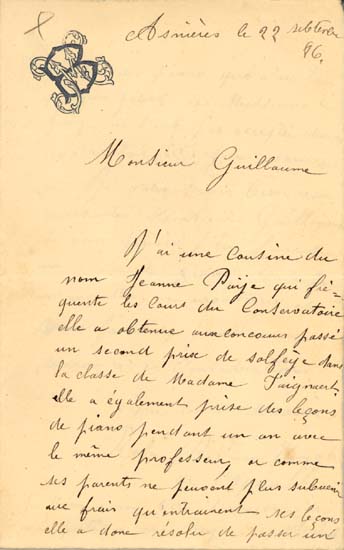 Asnières le 22 septembre
96.
Monsieur Guillaume
J'ai une cousine du
nom Jeanne qui fré-
quente les cours du Conservatoire
elle a obtenue aux concours passé
un second prise de solfège dans
la classe de Madame
elle a également prise des leçons
de piano pendant un an avec
le même professeur, or comme
ses parents ne peuvent plus subvenir
aux frais qu'entrainent ses leçons
elle a donc résolu de passer un